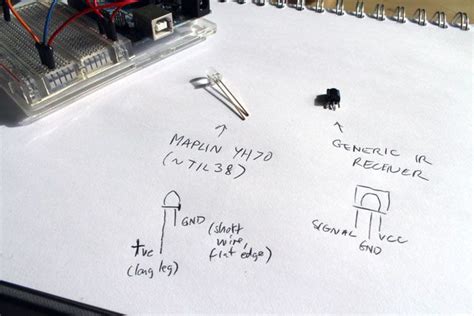 MAPLIN YH70
(~TIL38)
GENERIC IR
RECEIVER
GND
(short
wire,
flat edge)
+ve
(long leg)
SIGNAL
GND
VCC